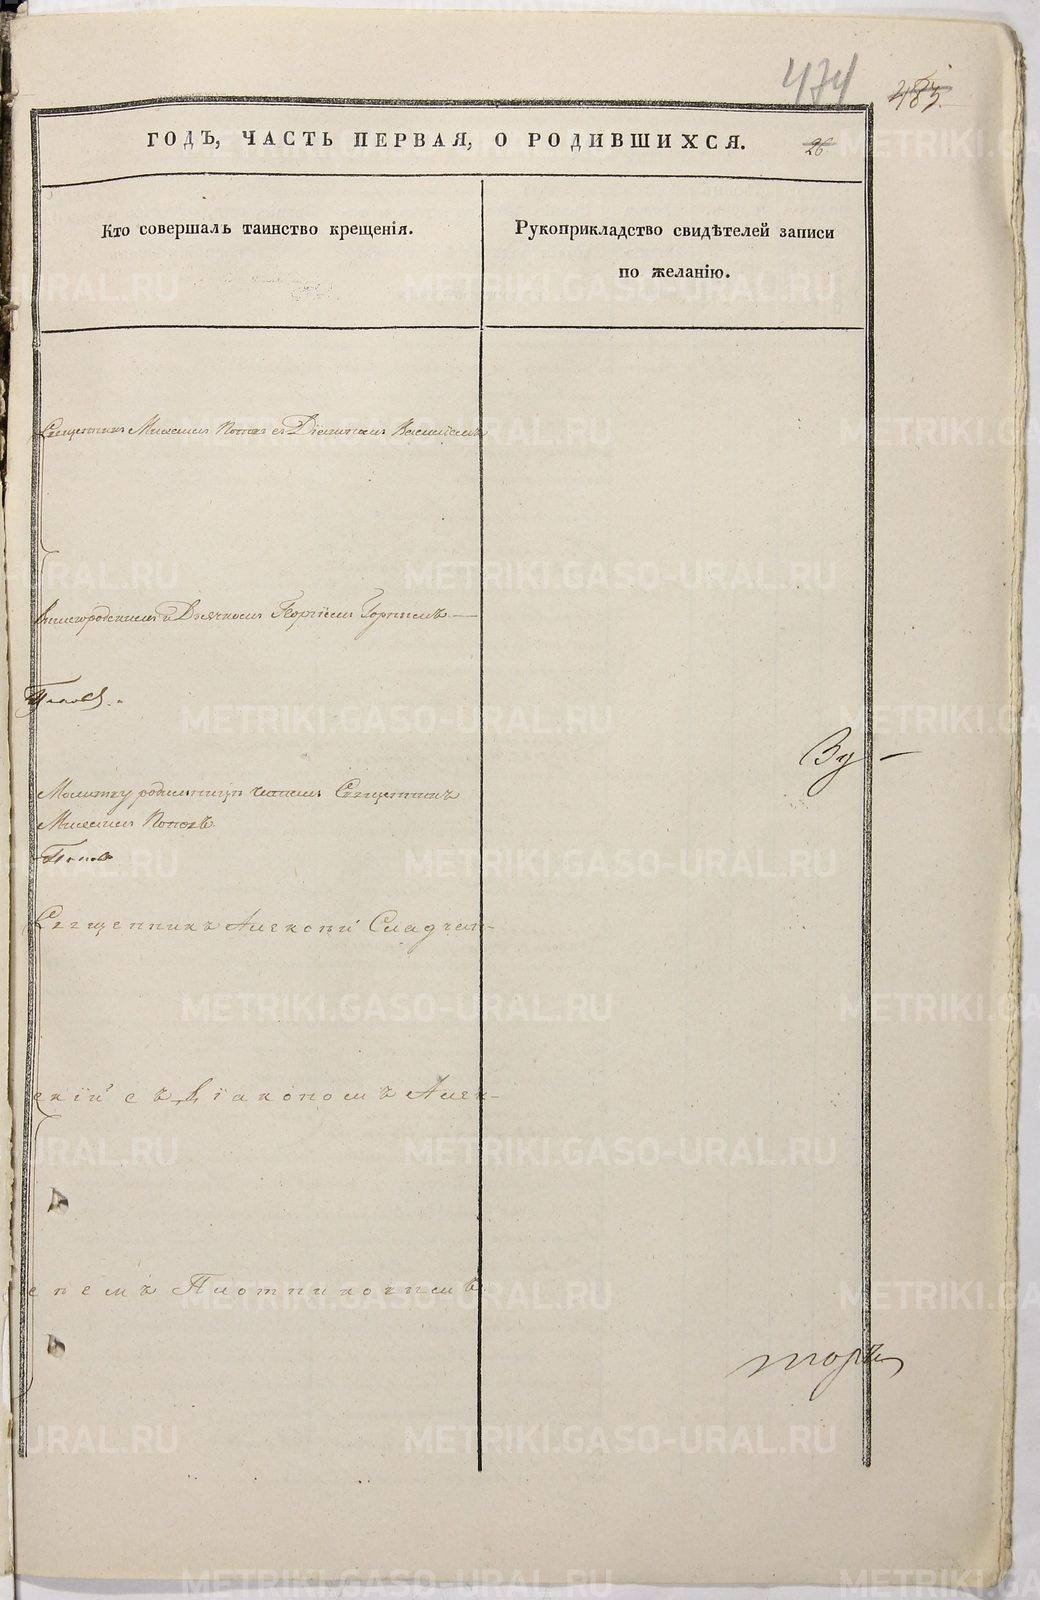 474
483.
ГОДЪ, ЧАСТЬ ПЕРВАЯ, О РОДИВШИХСЯ.
26
Кто совершалъ таинство крещенія.
Рукоприкладство свидѣтелей записи
по желанію.
Священник Михаил Попов с Діаконом Василіемъ
и Дьячкомъ Георгіем
Молитву родильницѣ читал Священникъ
Михаил Поповъ.
Попов
Священникъ Алексѣй Сладчан-
скій съ Діакономъ Алек-
Плотниковымъ
METRIKI.GASO-URAL.RU